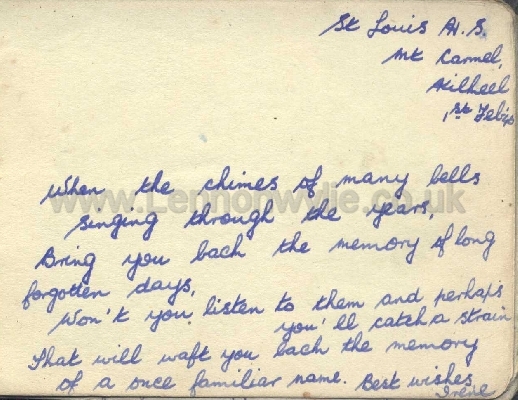 St Louis H.S.
Mt Carmel,
Kilkeel
1st Feb
www.Lennonwylie.co.uk
When the chimes of many bells
singing through the years,
Bring you back the memory of long
forgotten days,
Won't you listen to them and perhaps
you'll catch a strain
That will waft you back the memory
of a once familiar name. Best wishes
Irene